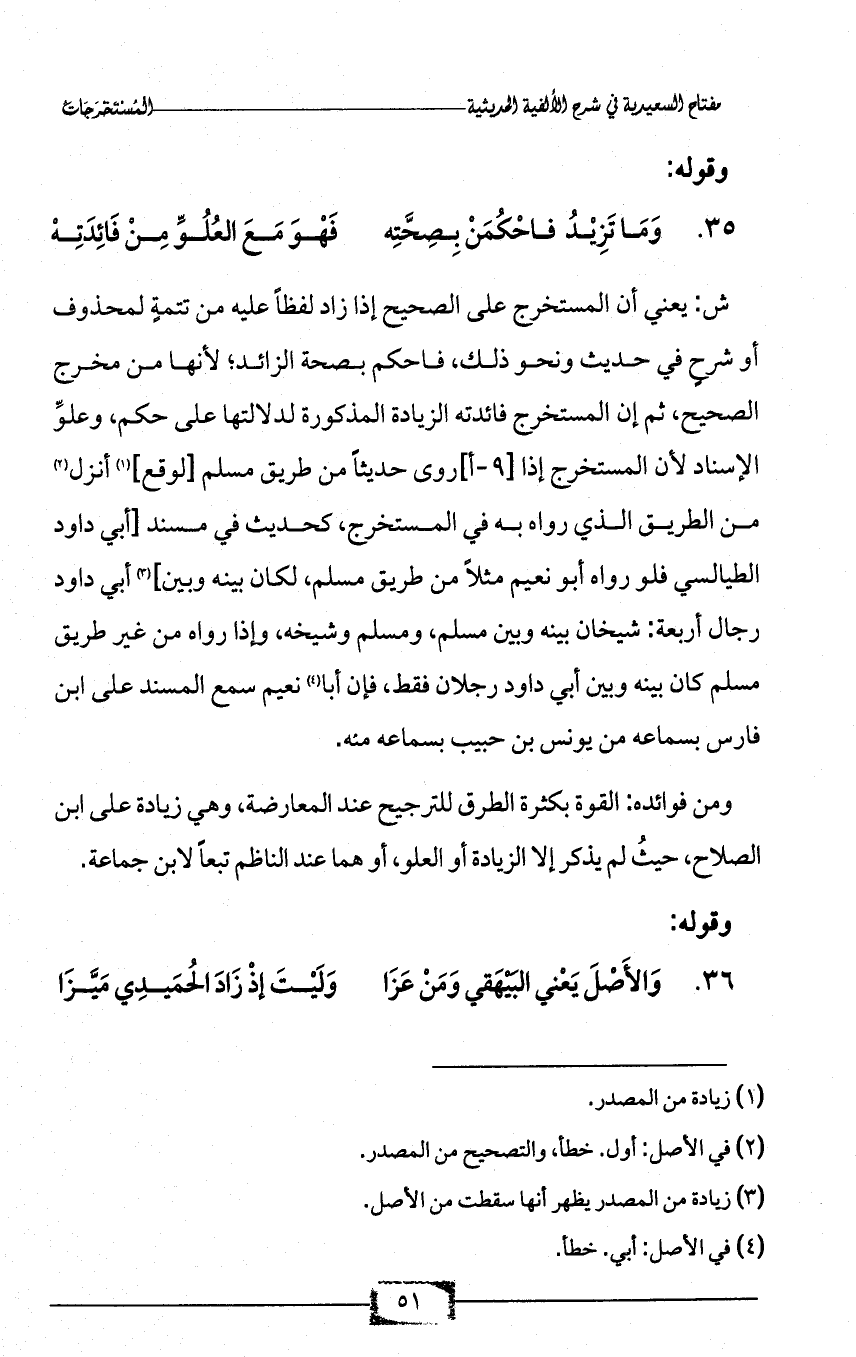 مفتاح السعيدية في شرح الألفية الحديثية المُسْتَخرَجَات
وقوله:
٣٥. وَمَا تَزِيْدُ فـاحْكُمَنْ بِـصِحَّتِه فَهْـوَ مَـعَ العُلُـوِّ مِـنْ فَائِدَتِـهْ
ش: يعني أن المستخرج على الصحيح إذا زاد لفظاً عليه من تتمةٍ لمحذوف
أو شرحٍ في حديث ونحو ذلك، فاحكم بصحة الزائد؛ لأنها من مخرج
الصحيح، ثم إن المستخرج فائدته الزيادة المذكورة لدلالتها على حكم، وعلوِّ
الإسناد لأن المستخرج إذا [٩-أ] روى حديثاً من طريق مسلم [لوقع](١) أنزل(٢)
من الطريق الذي رواه به في المستخرج، كحديث في مسند [أبي داود
الطيالسي فلو رواه أبو نعيم مثلاً من طريق مسلم، لكان بينه وبين](٣) أبي داود
رجال أربعة: شيخان بينه وبين مسلم، ومسلم وشيخه، وإذا رواه من غير طريق
مسلم كان بينه وبين أبي داود رجلان فقط، فإن أبا(٤) نعيم سمع المسند على ابن
فارس بسماعه من يونس بن حبيب بسماعه منه.
ومن فوائده: القوة بكثرة الطرق للترجيح عند المعارضة، وهي زيادة على ابن
الصلاح، حيثُ لم يذكر إلا الزيادة أو العلو، أو هما عند الناظم تبعاً لابن جماعة.
وقوله:
٣٦. وَالأَصْلَ يَعْني البَيْهَقي وَمَنْ عَزَا وَلَيْـتَ إذْ زَادَ الحُمَيـدِي مَيَّـزَا
(١) زيادة من المصدر.
(٢) في الأصل: أول. خطأ، والتصحيح من المصدر.
(٣) زيادة من المصدر يظهر أنها سقطت من الأصل.
(٤) في الأصل: أبي. خطأ.
٥١